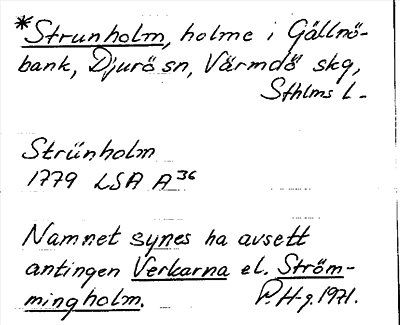 *Strunholm, holme i Gällnö-
bank, Djurö sn, Värmdö skg,
Sthlms l.
Strünholm
1779 LSA A 36
Namnet synes ha avsett
antingen Verkarna el. Ström-
mingholm. P.Hg.1971.